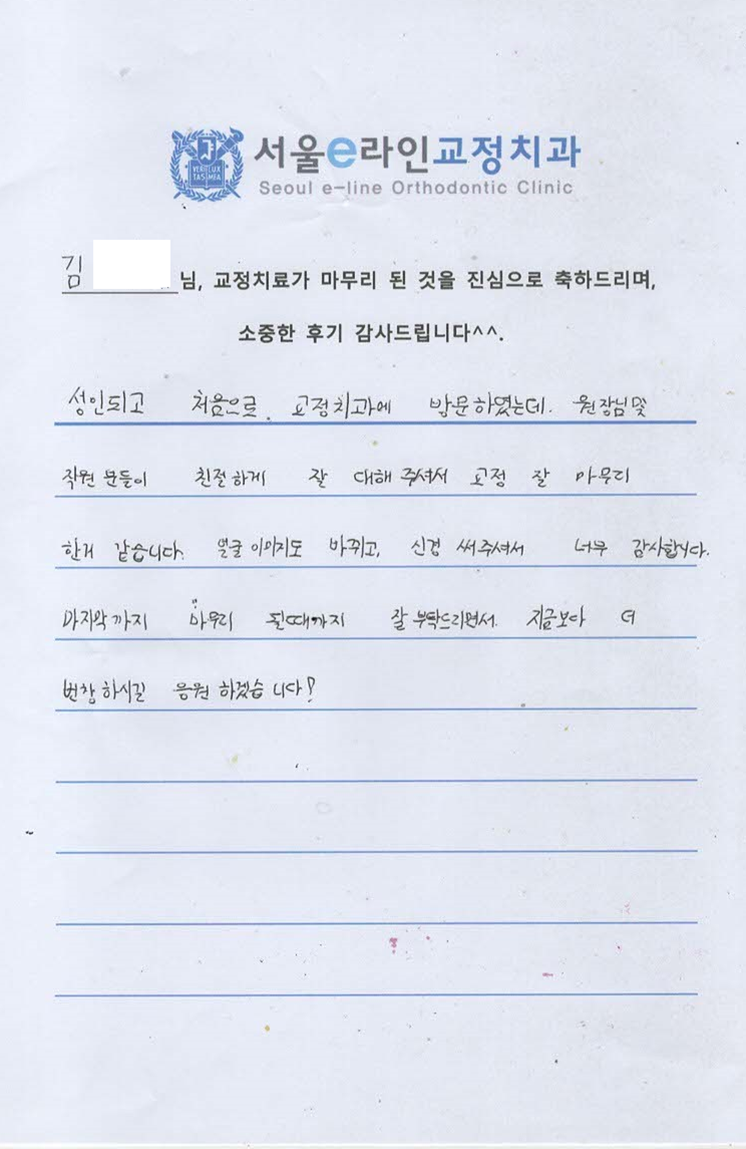 서울e라인교정치과
Seoul e-line Orthodontic Clinic
VERI LUX
TAS MEA
김 님, 교정치료가 마무리 된 것을 진심으로 축하드리며,
소중한 후기 감사드립니다^^.
성인되고 처음으로. 교정치과에 방문하였는데. 원장님및
직원 분들이 친절하게 잘 대해 주셔서 교정 잘 마무리
한거 같습니다. 얼굴 이미지도 바뀌고, 신경 써주셔서 너무 감사합니다.
마지막까지 마무리 될때까지 잘 부탁드리면서. 지금보다 더
번창하시길 응원 하겠습니다!